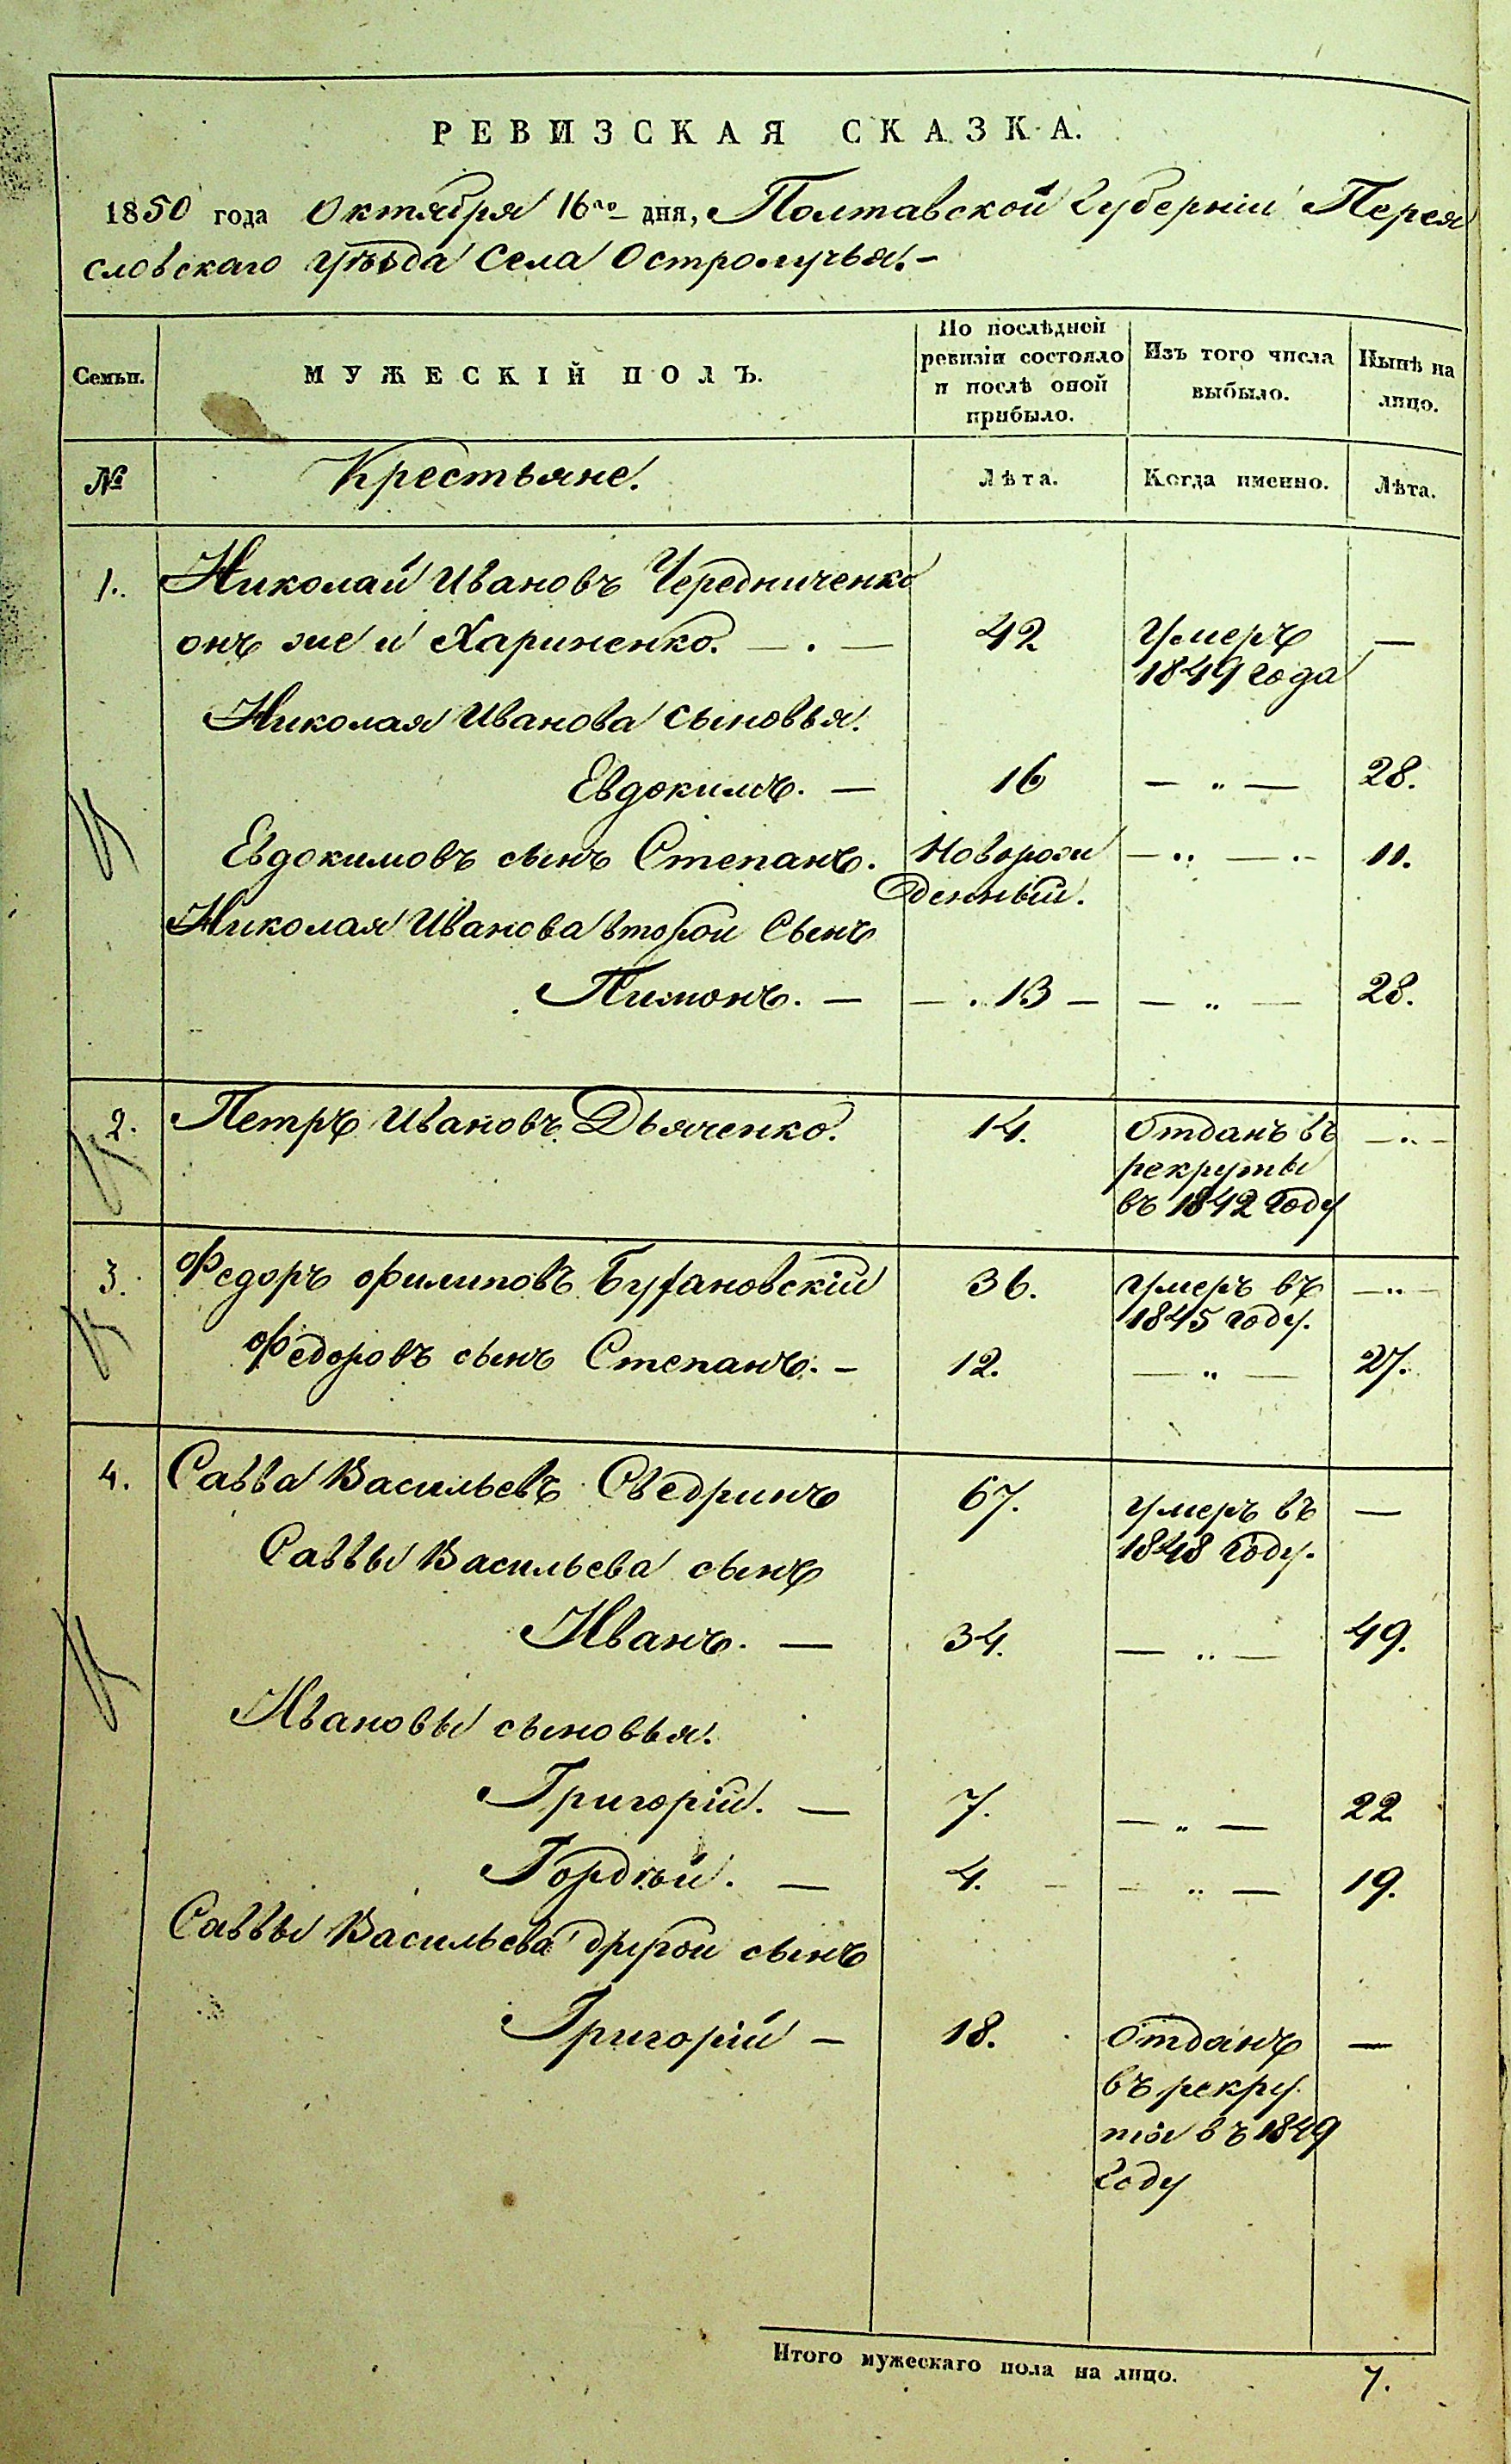 РЕВИЗСКАЯ СКАЗКА.
1850 года Октября 16го дня, Полтавской Губерніи Перея
словскаго уѣзда Села Остролучья.-
Семьи.
МУЖЕСКІЙ ПОЛЪ.
По послѣдней
ревизіи состояло
и послѣ оной
прибыло.
Изъ того числа
выбыло.
Нынѣ на
лицо.
№ Крестьяне. Лѣта. Когда именно. Лѣта.
1. Николай Ивановъ Чередниченко
онъ же и Хариненко. — . — 42 Умеръ —
1849 года
Николая Иванова сыновья.
Евдокимъ. — 16 — „ — 28.
Евдокимовъ сынъ Степанъ. Новорож — .. — .- 11.
денный.
Николая Иванова второй Сынъ
Пимонъ. — — . 13 — — „ — 28.
2. Петръ Ивановъ Дьяченко. 14. Отданъ въ — . —
рекруты
въ 1842 году
3. Федоръ Филиповъ Бурановскій 36. умеръ въ — .. —
1845 году.
Федоровъ сынъ Степанъ. — 12. — „ — 27.
4. Савва Васильевъ Сведринъ 67. умеръ въ —
1848 году.
Саввы Васильева сынъ
Иванъ. — 34. — .. — 49.
Ивановы сыновья.
Григорій. — 7. — „ — 22
Гордѣй. — 4. — — .. — 19.
Саввы Васильева другой сынъ
Григорій — 18. Отданъ —
въ рекру
ты въ 1849
году
Итого мужескаго пола на лицо. 7.